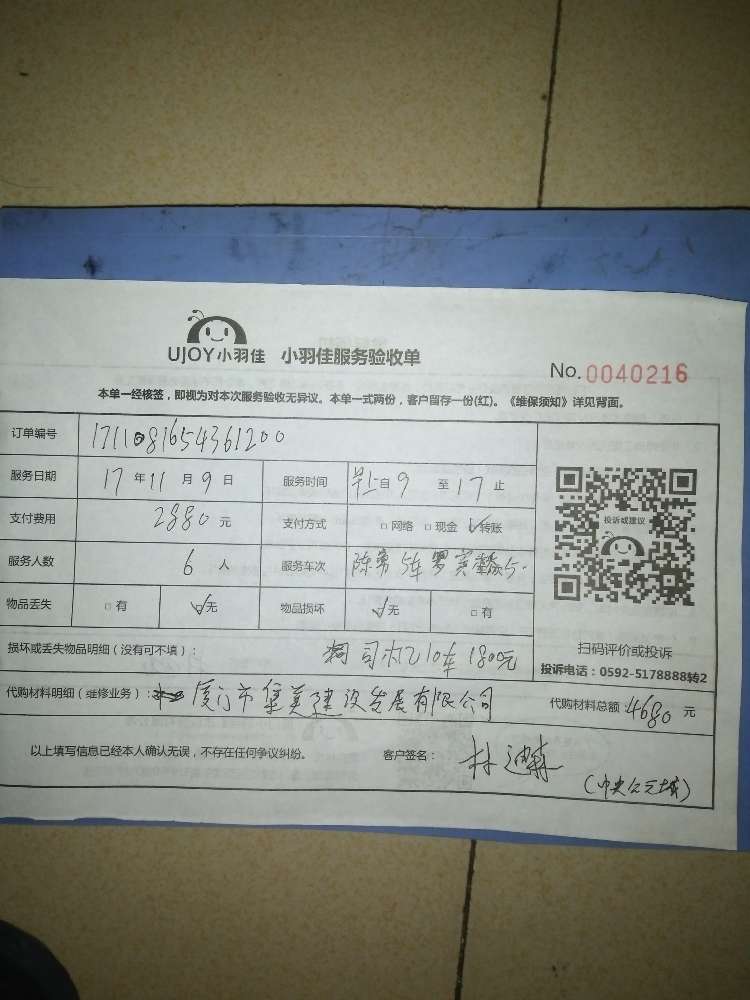 UJOY小羽佳 小羽佳服务验收单
No.0040216
本单一经核签，即视为对本次服务验收无异议。本单一式两份，客户留存一份(红)。《维保须知》详见背面。
订单编号 1711081654361200
服务日期 17年11月9日 服务时间 早上自9至17止
支付费用 2880元 支付方式 □网络 □现金 ☑转账
投诉或建议
服务人数 6人 服务车次 陈勇5车
物品丢失 □有 ☑无 物品损坏 ☑无 □有
扫码评价或投诉
损坏或丢失物品明细（没有可不填）： 司机10车1800元
投诉电话：0592-5178888转2
代购材料明细（维修业务）： 厦门市集美建设发展有限公司 代购材料总额 4680元
以上填写信息已经本人确认无误，不存在任何争议纠纷。 客户签名： 林
（中央公元城）